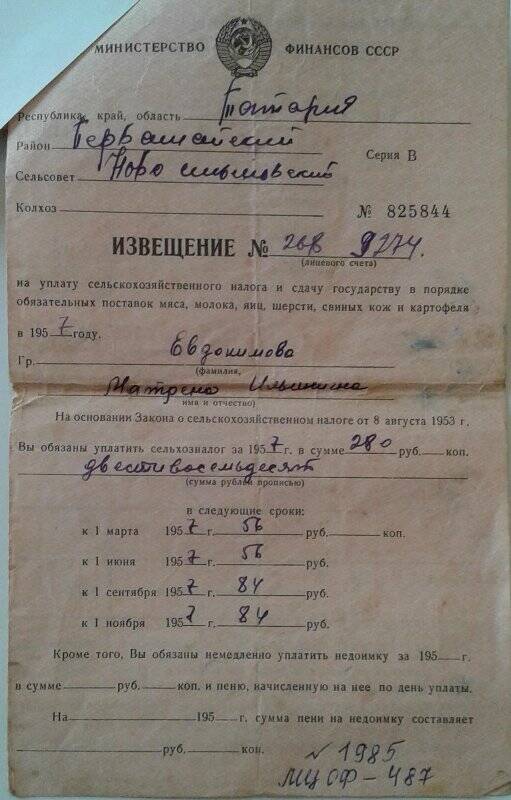 МИНИСТЕРСТВО ФИНАНСОВ СССР
Республика, край, область Татария
Район Первомайский
Серия В
Сельсовет Ново
Колхоз
№ 825844
ИЗВЕЩЕНИЕ № 268 9274.
(лицевого счета)
на уплату сельскохозяйственного налога и сдачу государству в порядке
обязательных поставок мяса, молока, яиц, шерсти, свиных кож и картофеля
в 1957 году.
Гр. Евдокимова
(фамилия,
Матрена Ильинична
имя и отчество)
На основании Закона о сельскохозяйственном налоге от 8 августа 1953 г.
Вы обязаны уплатить сельхозналог за 1957 г. в сумме 280 руб. коп.
двестивосемьдесят
(сумма рублей прописью)
в следующие сроки:
к 1 марта 1957 г. 56 руб. коп.
к 1 июня 1957 г. 56 руб.
к 1 сентября 1957 г. 84 руб.
к 1 ноября 1957 г. 84 руб.
Кроме того, Вы обязаны немедленно уплатить недоимку за 195 г.
в сумме руб. коп. и пеню, начисленную на нее по день уплаты.
На 195 г. сумма пени на недоимку составляет
руб. коп.
№ 1985
МЦ ОФ-487